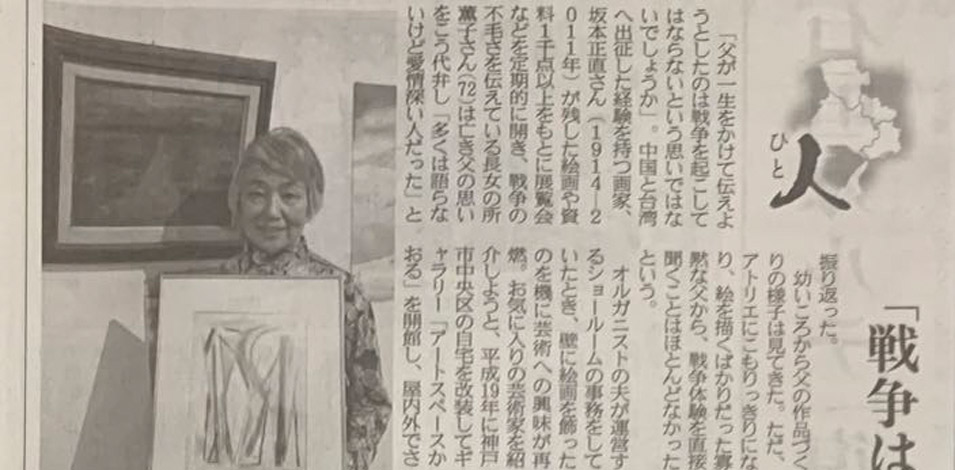 人
ひと
「戦争は
「父が一生をかけて伝えよ
うとしたのは戦争を起こして
はならないという思いではな
いでしょうか」。中国と台湾
へ出征した経験を持つ画家、
坂本正直さん（1914―2
011年）が残した絵画や資
料1千点以上をもとに展覧会
などを定期的に開き、戦争の
不毛さを伝えている長女の所
薫子さん(72)は亡き父の思い
をこう代弁し「多くは語らな
いけど愛情深い人だった」と
振り返った。
幼いころから父の作品づく
りの様子は見てきた。ただ、
アトリエにこもりっきりにな
り、絵を描くばかりだった寡
黙な父から、戦争体験を直接
聞くことはほとんどなかった
という。
オルガニストの夫が運営す
るショールームの事務をして
いたとき、壁に絵画を飾った
のを機に芸術への興味が再
燃。お気に入りの芸術家を紹
介しようと、平成19年に神戸
市中央区の自宅を改装してギ
ャラリー「アートスペースか
おる」を開館し、屋内外でさ